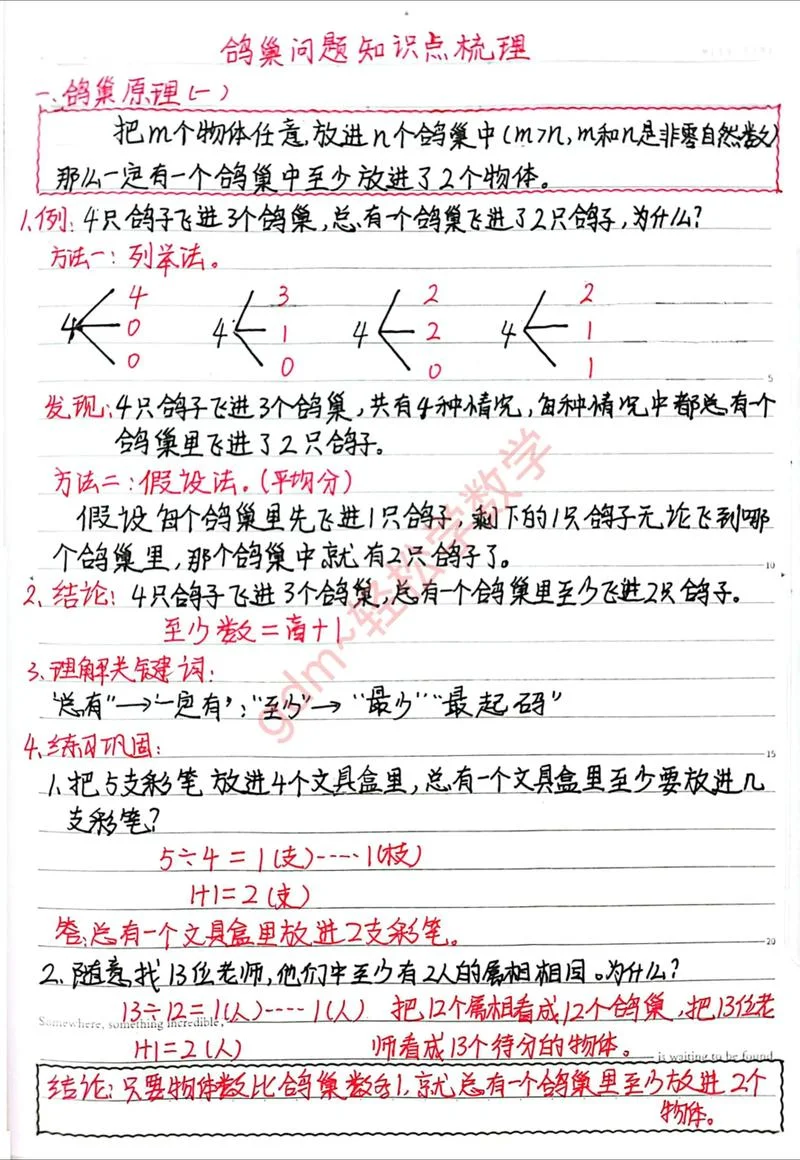 鸽巢问题知识点梳理
一、鸽巢原理(一)
把m个物体任意放进n个鸽巢中(m>n,m和n是非零自然数)
那么一定有一个鸽巢中至少放进了2个物体。
1.例:4只鸽子飞进3个鸽巢,总有一个鸽巢飞进了2只鸽子,为什么?
方法一:列举法。
4 4 0 0
4 3 1 0
4 2 2 0
4 2 1 1
发现:4只鸽子飞进3个鸽巢,共有4种情况,每种情况中都总有一个
鸽巢里飞进了2只鸽子。
方法二:假设法。(平均分)
假设每个鸽巢里先飞进1只鸽子,剩下的1只鸽子无论飞到哪
个鸽巢里,那个鸽巢中就有2只鸽子了。
2.结论:4只鸽子飞进3个鸽巢,总有一个鸽巢里至少飞进2只鸽子。
至少数=商+1
3.理解关键词:
"总有"→"一定有";"至少"→"最少""最起码"
4.练习巩固:
1.把5支彩笔放进4个文具盒里,总有一个文具盒里至少要放进几
支彩笔?
5÷4=1(支)·····1(枝)
1+1=2(支)
答:总有一个文具盒里放进2支彩笔。
2.随意找13位老师,他们中至少有2人的属相相同。为什么?
13÷12=1(人)····1(人) 把12个属相看成12个鸽巢,把13位老
Somewhere, something incredible,
1+1=2(人) 师看成13个待分的物体。
is waiting to be found
结论:只要物体数比鸽巢数多1,就总有一个鸽巢里至少放进2个
物体。
gdm~轻松学数学
5
10
15
20